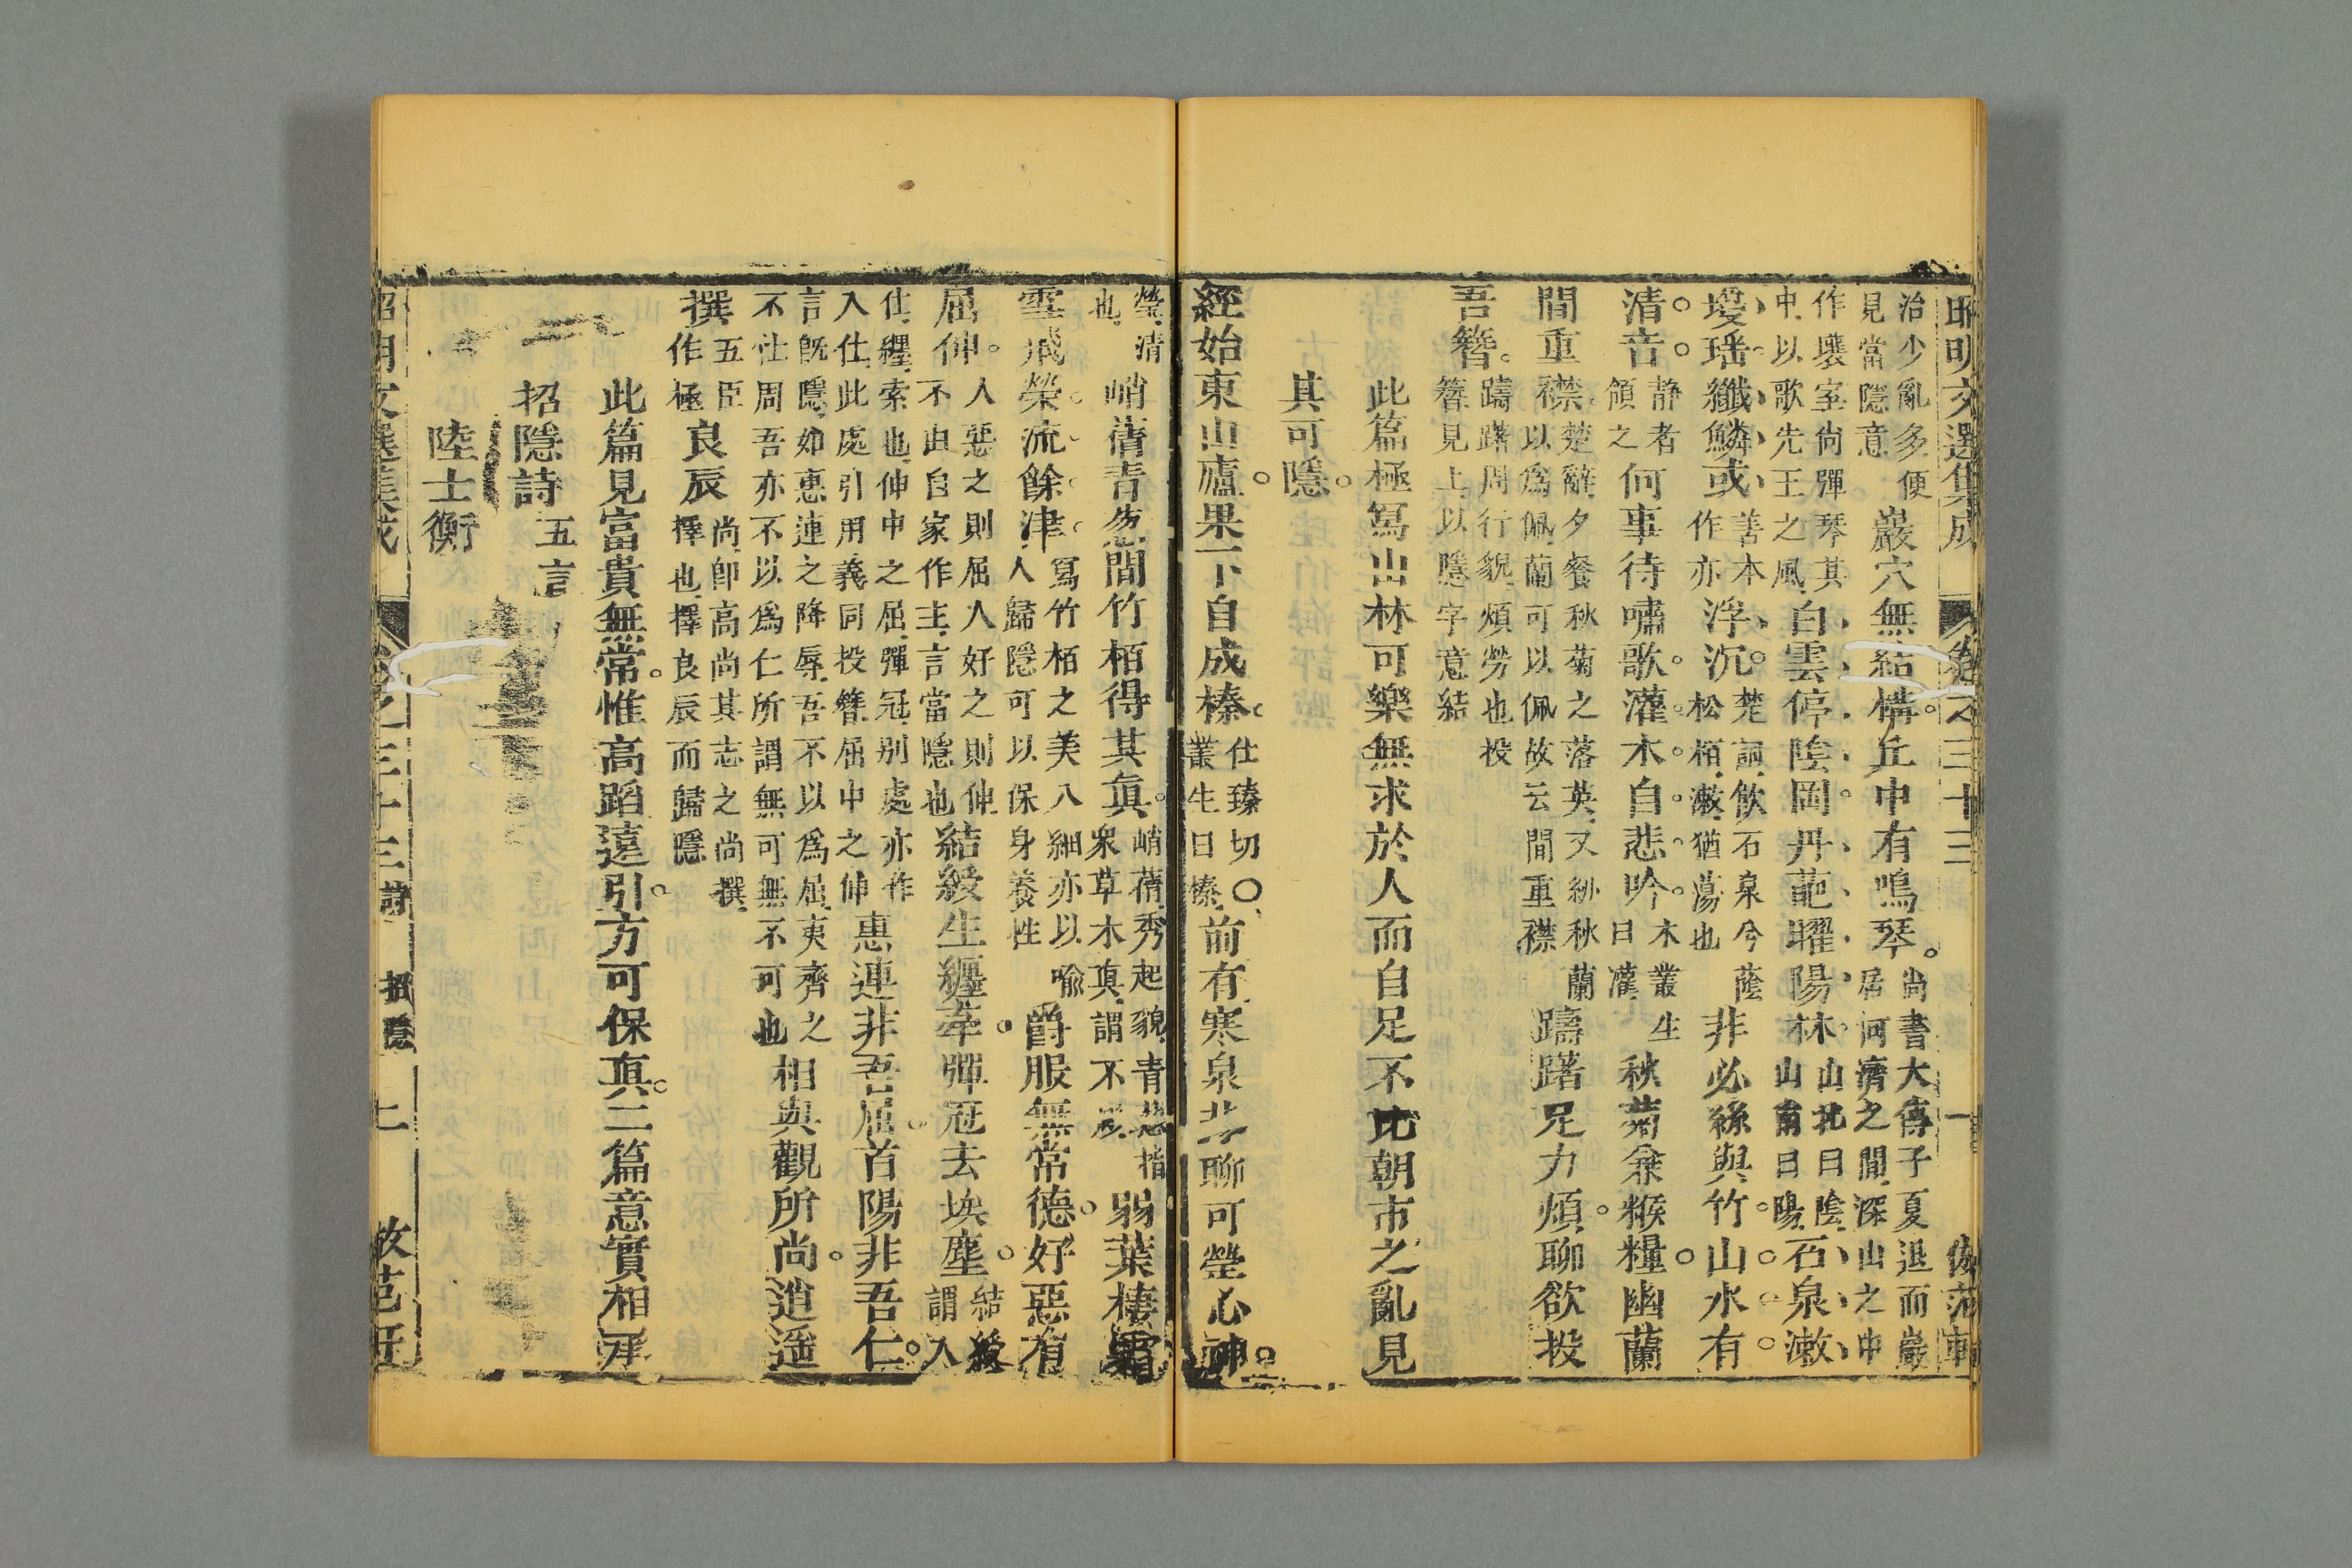 昭明文選集成 卷之三十三 一 倣范軒
治少亂多便見當隱意巖穴無結構。丘中有鳴琴。尚書大傳子夏退而巖居河濟之間深山之中
作壤室尚彈琴其中以歌先王之風白雲停陰岡。丹葩曜陽林。山北曰陰山南曰陽石泉漱
瓊瑤纖鱗或善本作亦浮沉。楚詞飲石泉兮蔭松栢漱猶蕩也非必絲與竹。山水有
清音静者領之何事待嘯歌。灌木自悲吟。木叢生曰灌秋菊兼糇糧。幽蘭
間重襟。楚辭夕餐秋菊之落英又紉秋蘭以爲佩蘭可以佩故云間重襟躊躇足力煩。聊欲投
吾簪。躊躇周行貌煩勞也投簪見上以隱字意結
此篇極寫山林可樂無求於人而自足不比朝市之亂見
其可隱。
經始東山廬。果下自成榛。仕瑧切〇叢生曰榛前有寒泉井聊可瑩心神。
瑩清也峭蒨青葱間竹栢得其真。峭蒨秀起貌青葱指衆草木真謂不彫弱葉棲霜
雪成榮。流餘津。寫竹栢之美入細亦以喻人歸隱可以保身養性爵服無常德。好惡有
屈伸。人惡之則屈人好之則伸不由自家作主言當隱也結綬生纏牽。彈冠去埃塵。結綬謂入
仕纏索也伸中之屈彈冠别處亦作入仕此處引用義同投簪屈中之伸惠連非吾屈。首陽非吾仁。
言既隱如惠連之降辱吾不以爲屈夷齊之不仕周吾亦不以爲仁所謂無可無不可也相與觀所尚。逍遥
撰五臣作極良辰尚即高尚其志之尚撰擇也擇良辰而歸隱
此篇見富貴無常。惟高蹈遠引。方可保真。二篇意實相承
招隱詩五言
陸士衡
昭明文選集成 卷之三十三 詩 招隱 二 倣范軒